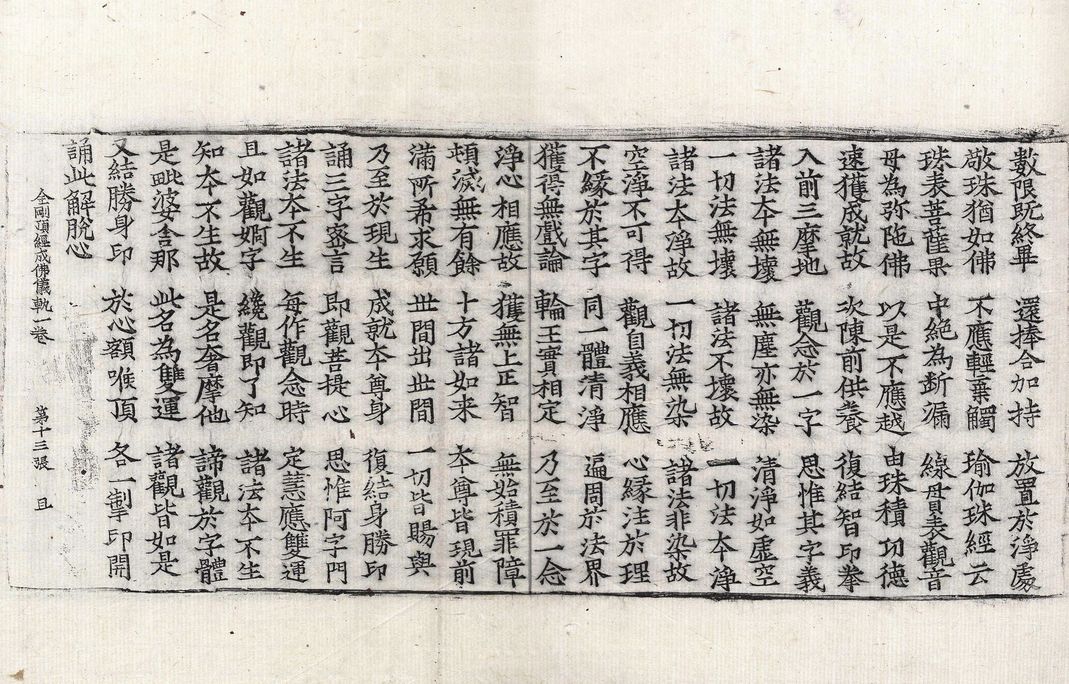 數限旣終畢 還捧合加持 放置於淨處
敬珠猶如佛 不應輕棄觸 瑜伽珠經云
珠表菩薩果 中絶為斷漏 線貫表觀音
母為弥陁佛 以是不應越 由珠積功德
速獲成就故 次陳前供養 復結智印拳
入前三摩地 觀念於一字 思惟其字義
諸法夲無壞 無塵亦無染 清淨如虛空
一切法無壞 諸法不壞故 一切法夲淨
諸法夲淨故 一切法無染 諸法非染故
空淨不可得 觀自義相應 心緣注於理
不緣於其字 同一體清淨 遍周於法界
獲得無戲論 輪王實相定 乃至於一念
淨心相應故 獲無上正智 無始積罪障
頓滅無有餘 十方諸如来 夲尊皆現前
滿所希求願 丗間出丗間 一切皆賜與
乃至於現生 成就夲尊身 復結身勝印
誦三字密言 即觀菩提心 思惟阿字門
諸法夲不生 每作觀念時 定慧應雙運
且如觀婀字 纔觀即了知 諸法夲不生
知夲不生故 是名奢摩他 諦觀於字體
是毗婆舍那 此名為雙運 諸觀皆如是
又結勝身印 於心額喉頂 各一掣印開
誦此解脫心
金剛頂經成佛儀軌一卷 第十三張 且